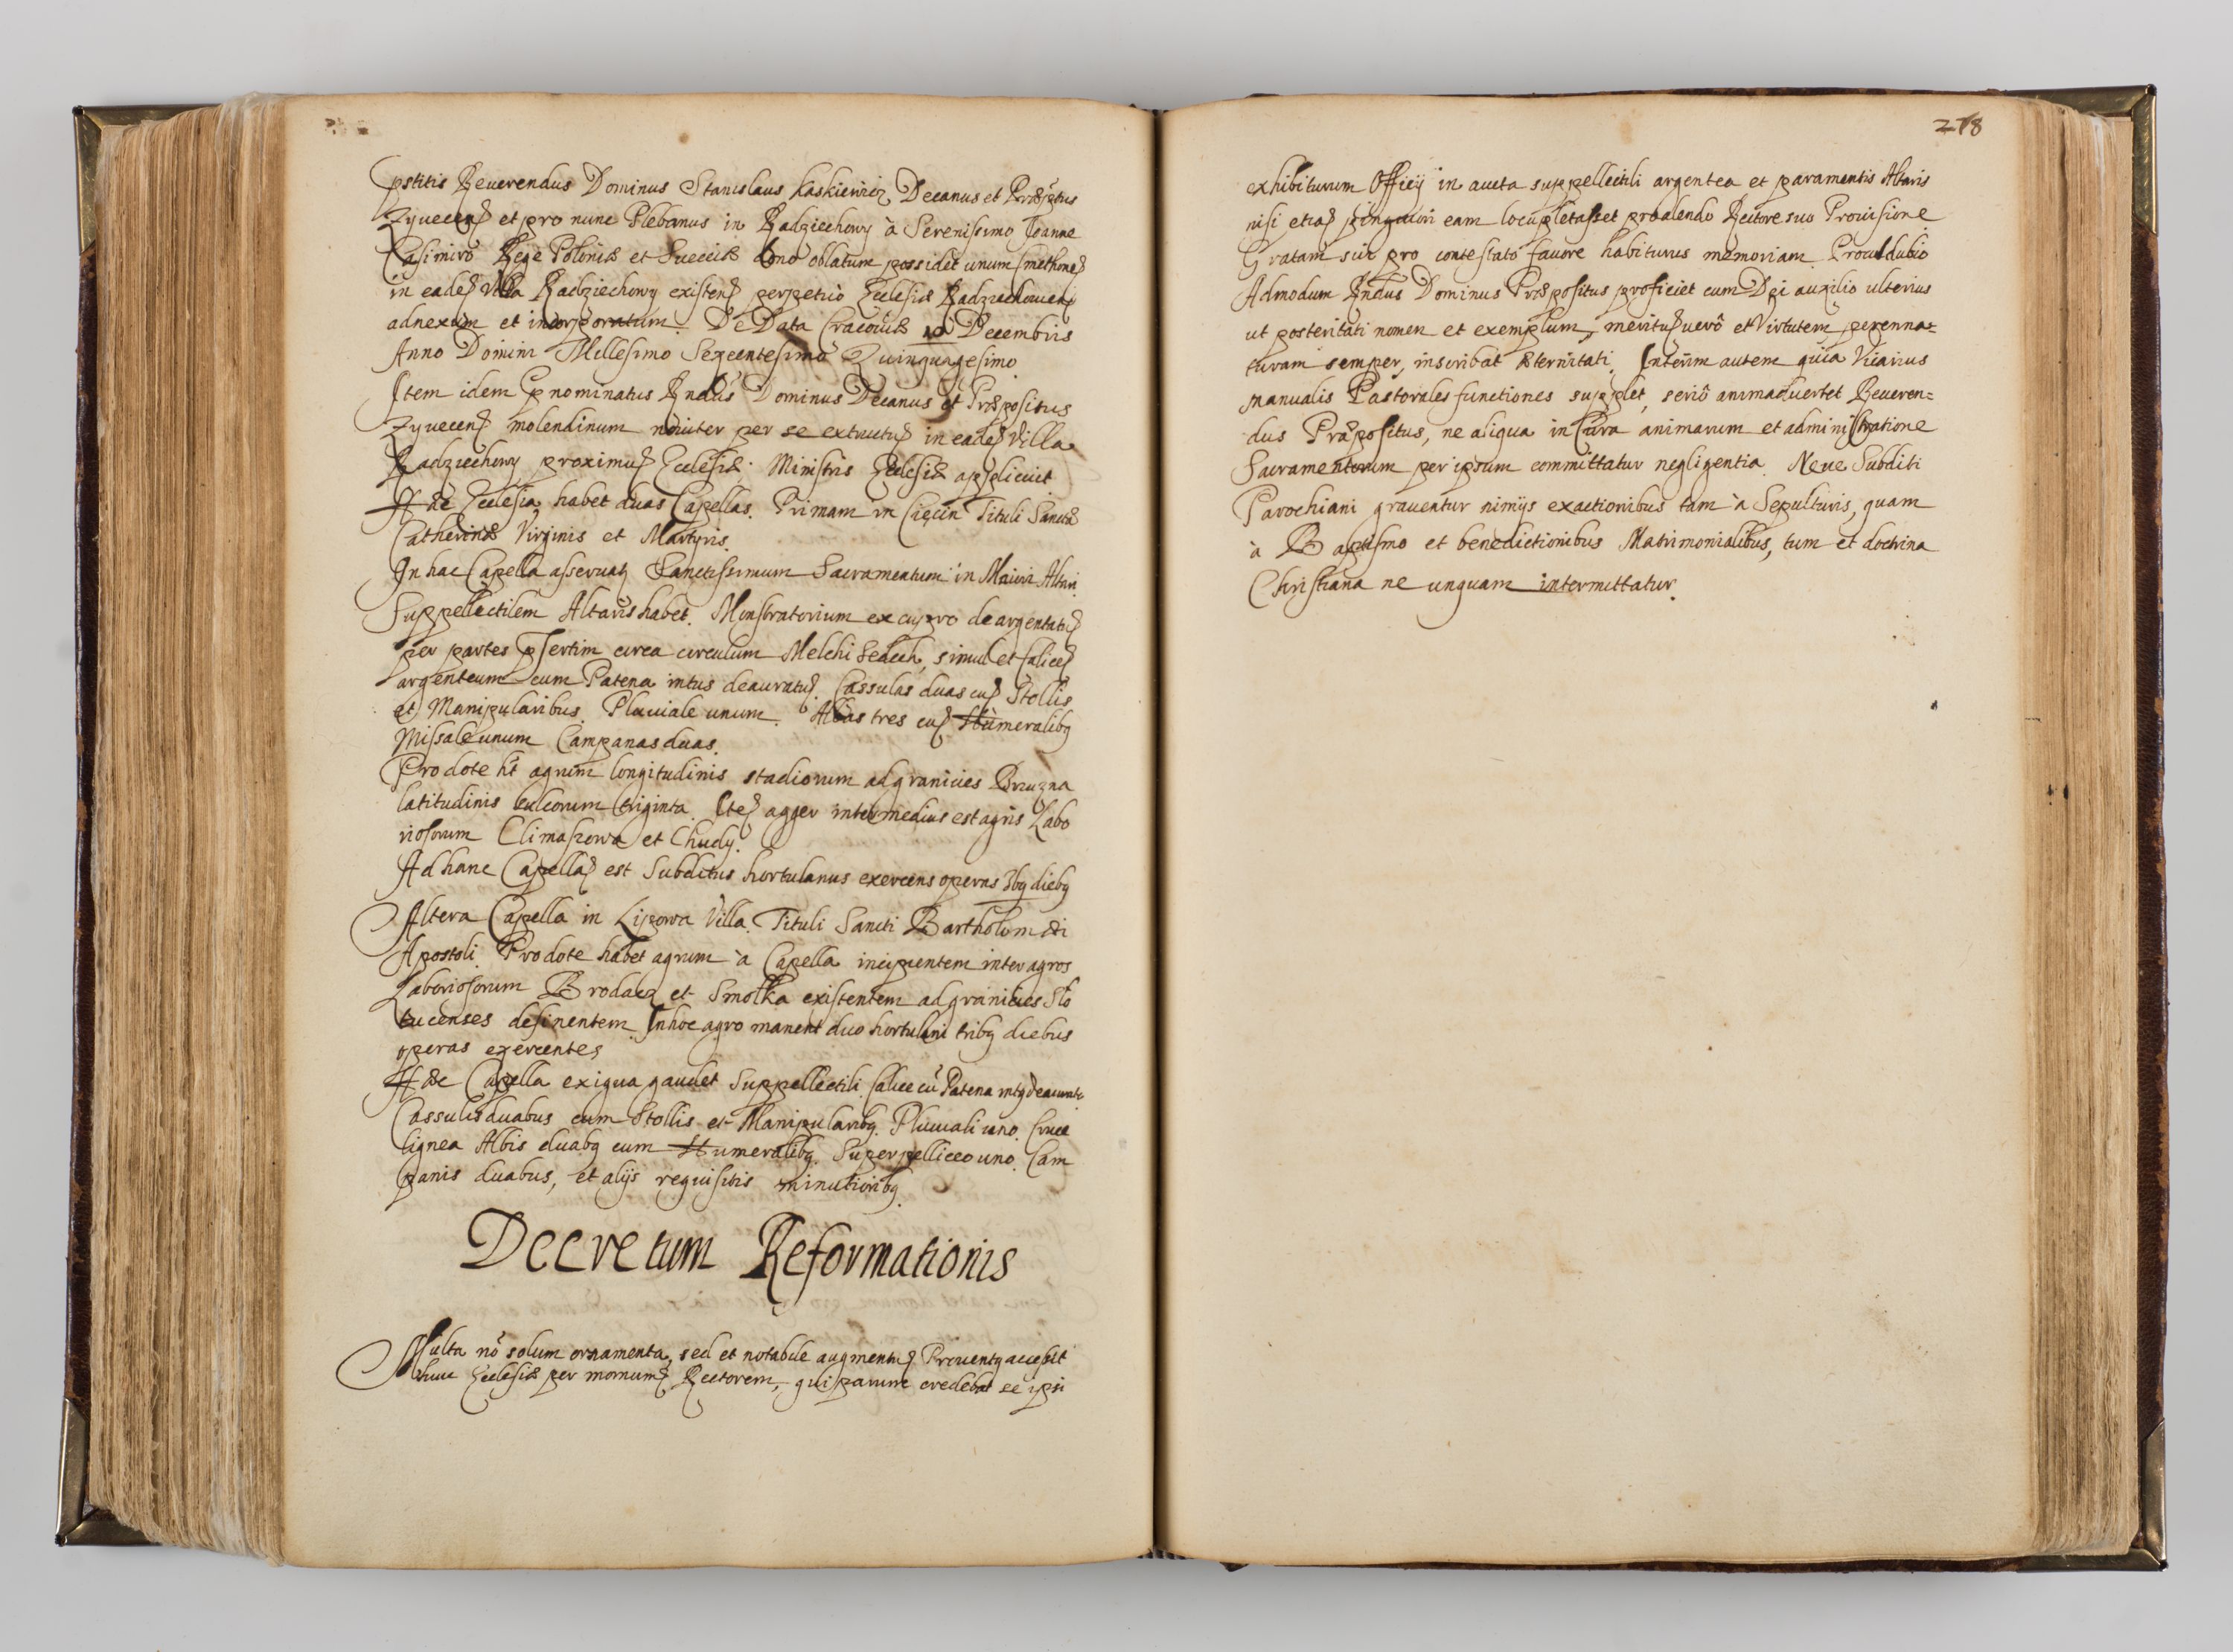 pstitis Reuerendus Dominus Stanislaus Kaskiewicz Decanus et Præptus
Zyuecens et pro nunc Plebanus in Radziechowy à Serenissimo Ioanne
Casimiro Rege Poloniæ et Sueciæ dono oblatum possidet unum Smethonem
in eadem Villa Radziechowy existens perpetuò Ecclesiæ Radziechouiens
adnexum et incorporatum. De Data Cracouiæ 10 Decembris
Anno Domini Millesimo Sexcentesimo Quinquagesimo.
Item idem prnominatus Rndus Dominus Decanus et Præpositus
Zyuecens molendinum nouiter per se extructum in eadem Villa
Radziechowy proximum Ecclesiæ. Ministris Ecclesiæ applicuit
Hæc Ecclesia habet duas Capellas. Primam in Ciecin Tituli Sanctæ
Catherinæ Virginis et Martyris.
In hac Capella asseruatq Sanctissimum Sacramentum in Maiori Altari.
Suppellectilem Altaris habet. Monstratorium ex cupro deargentatum
per partes psertim circa circulum Melchisedech, simul et Calicem
argenteum cum Patena intus deauratum. Cassulas duas cum Stollis
et Manipularibus. Pluuiale unum. Albas tres cum Humeralibq
Missale unum Campanas duas.
Pro dote ht agrum longitudinis stadiorum ad granicies Bruzna
latitudinis sulcorum triginta. Item agger intermedius est agris Labo
riosorum Climaszowa et Chudy.
Ad hanc Capellam est Subditus hortulanus exercens operas 3bq diebq
Altera Capella in Lipowa Villa. Tituli Sancti Bartholomæi
Apostoli. Pro dote habet agrum à Capella incipientem inter agros
Laboriosorum Brodacz et Smolka existentem ad granicies Slo
tucenses desinentem. In hoc agro manent duo hortulani tribq diebus
operas exercentes
Hæc Capella exigua gaudet Suppellectili. Calice cū Patena intq deaurato
Cassulis duabus cum Stollis et Manipularibq. Pluuiali uno. Cruce
lignea Albis duabq cum Humeralibq. Superpelliceo uno. Cam
panis duabus, et alijs requisitis minutioribq.
Decretum Reformationis
Multa nō solum ornamenta, sed et notabile augmentum Prouentq accepit
huic Ecclesiæ per modernum Rectorem, qui parum credebat se ipsi
278
exhibiturum Officij in aucta suppellectili argentea et paramentis Altaris
nisi etiam pinguiori eam locupletasset pro alendo Rectore suo Prouisione
Gratam sui pro contestato fauore habiturus memoriam. Proculdubio
Admodum Rndus Dominus Præpositus proficiet cum Dei auxilio ulterius
ut posteritati nomen et exemplum, meritum uerô et Virtutem perenna=
turam semper, inscribat æternitati. Interim autem quia Vicarius
manualis Pastorales functiones supplet, seriô animaduertet Reueren=
dus Præpositus, ne aliqua in Cura animarum et administratione
Sacramentorum per ipsum committatur negligentia. Neue Subditi
Parochiani grauentur nimijs exactionibus tam à Sepulturis, quam
à Baptismo et benedictionibus Matrimonialibus, tum et doctrina
Christiana ne unquam intermittatur.